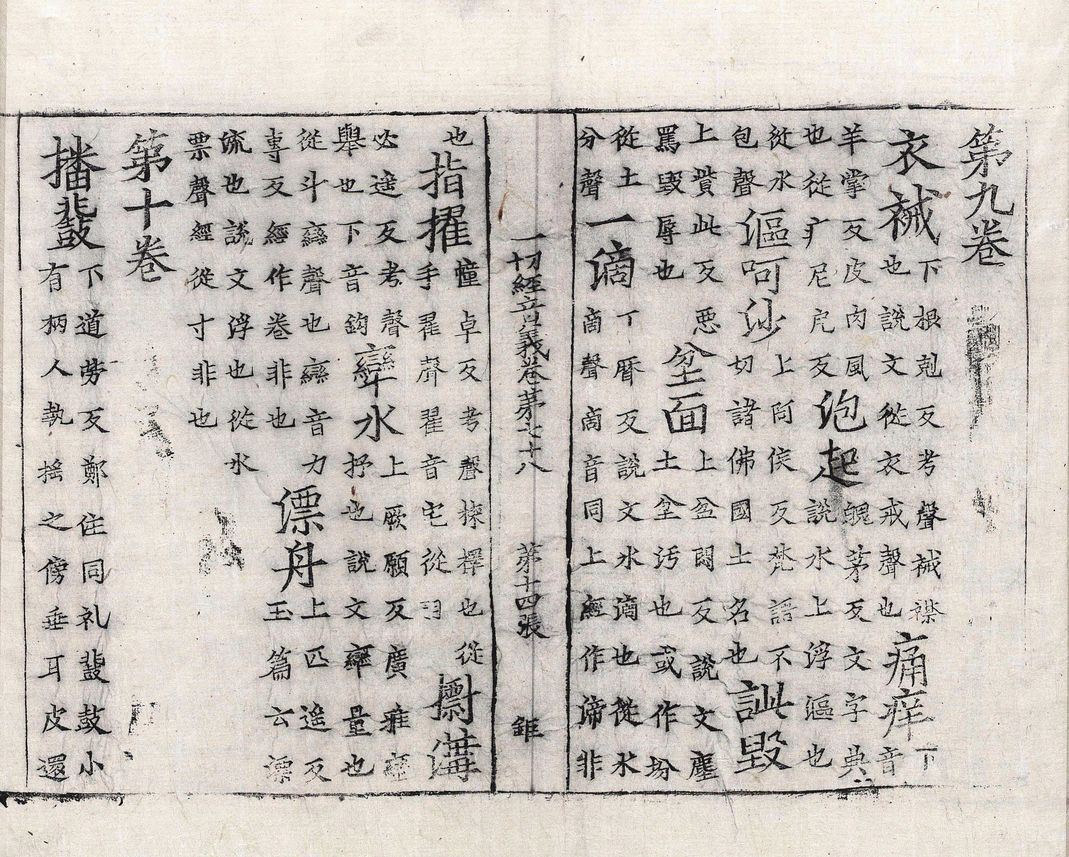 第九卷
衣裓
下根剋反考聲裓襟
也說文從衣戒聲也
痛痒
下
音
羊掌反皮肉風
也從疒尼戹反
皰起
魄茅反文字典
說水上浮漚也
從水
包聲
漚呵沙
上阿侯反梵語不
切諸佛國土名也
訿毀
上貲此反惡
罵毀辱也
坌面
上盆悶反說文塵
土坌污也或作坋
從土
分聲
一滴
丁曆反說文水滴也從水
啇聲啇音同上經作渧非
一切經音義卷第七十八
第十四張
錐
也
指擢
幢卓反考聲擇也從
手翟聲翟音宅從羽
韝
必遙反考聲
舉也下音鈎
水
上厥願反廣雅
抒也說文量也
從斗䜌聲也䜌音力
專反經作卷非也
漂舟
上匹遙反
玉篇云漂
流也說文浮也從水
票聲經從寸非也
第十卷
播鼗
下道勞反鄭注同礼鼗鼓小
有柄人執搖之傍垂耳皮還